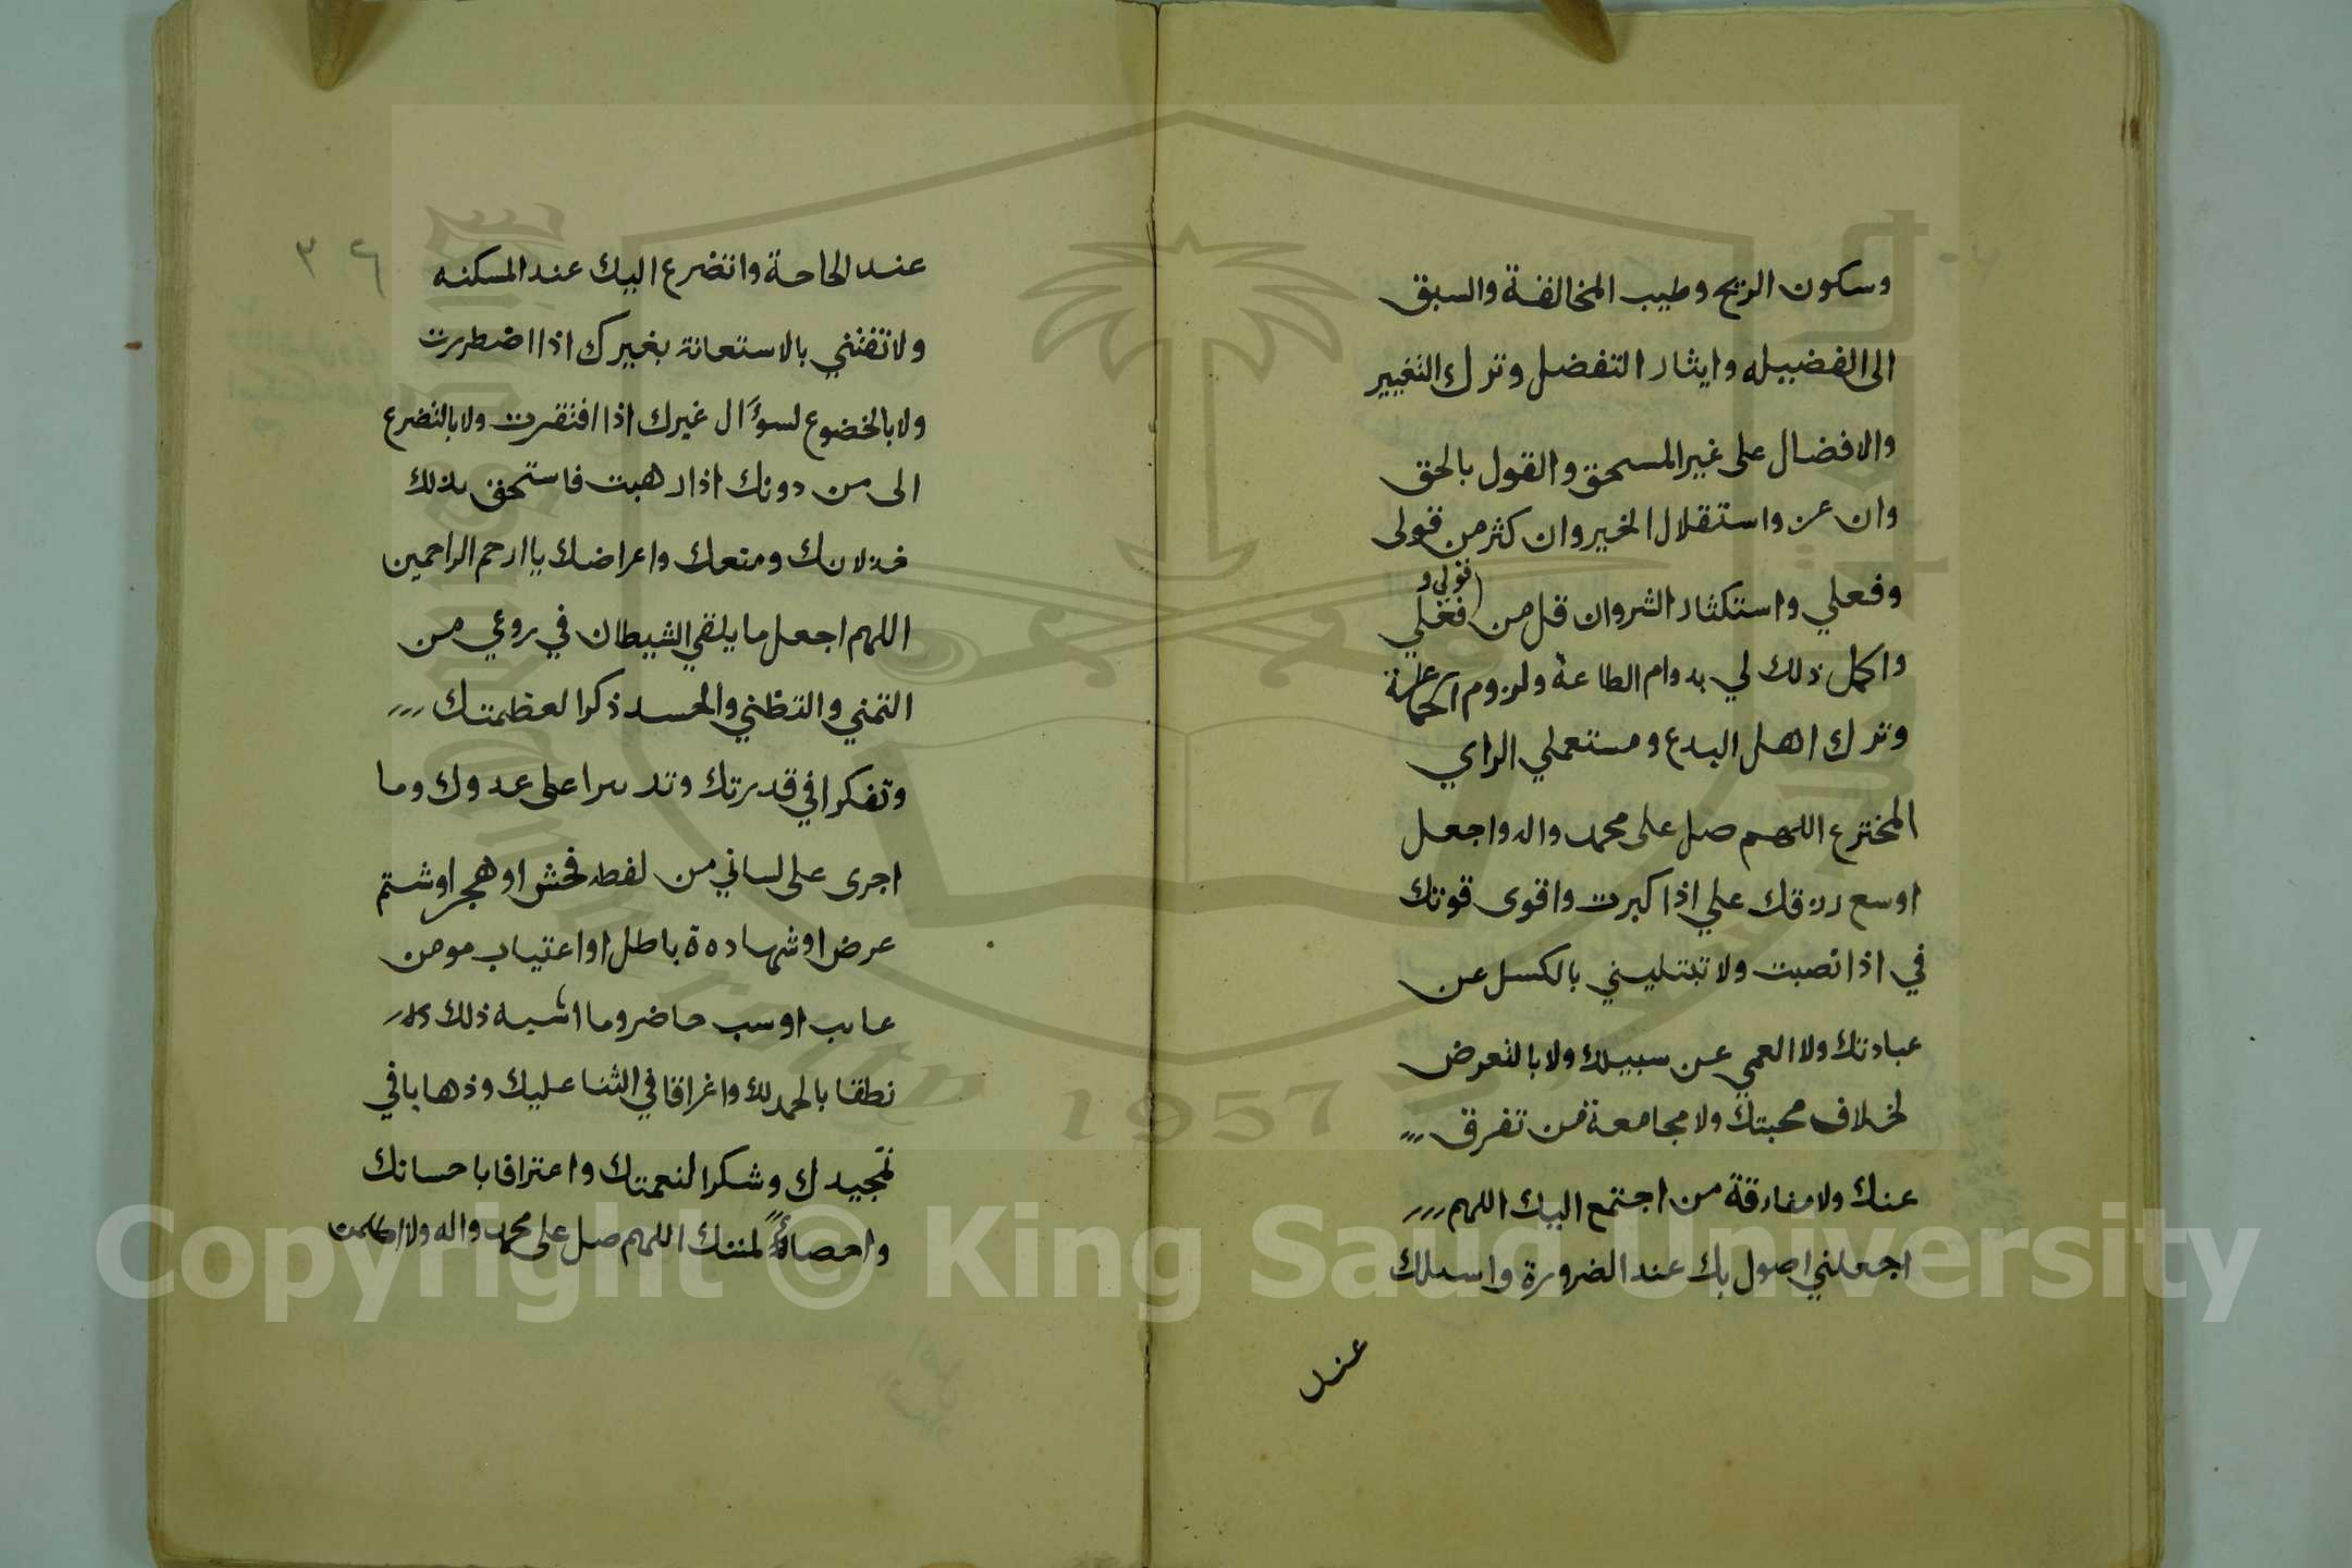 وسكون الريح وطيب المخالفة والسبق
الى الفضيله وايثار التفضل وترك التغيير
والافضال على غير المستحق والقول بالحق
وان عز واستقلال الخير وان كثر من قولى
وفعلي واستكثار الشر وان قل من قولي و فعلي
واكمل ذلك لي بدوام الطاعة ولزوم الجماعة
وترك اهل البدع ومستعملي الراي
المخترع اللهم صل على محمد واله واجعل
اوسع رزقك علي اذا كبرت واقوى قوتك
في اذا نصبت ولا تبتليني بالكسل عن
عبادتك ولا العمي عن سبيلك ولا بالتعرض
لخلاف محبتك ولا مجامعة من تفرق
عنك ولا مفارقة من اجتمع اليك اللهم
اجعلني اصول بك عند الضرورة واسىلك
عند
٣٤
عند الحاجة واتضرع اليك عند المسكنه
ولا تفتني بالاستعانة بغيرك اذا اضطررت
ولا بالخضوع لسؤال غيرك اذا افتقرت ولا بالتضرع
الى من دونك اذا رهبت فاستحق بذلك
خذلانك ومنعك واعراضك يا ارحم الراحمين
اللهم اجعل ما يلقي الشيطان في روعي من
التمني والتظني والحسد ذكرا لعظمتك
وتفكرا في قدرتك وتدبيرا على عدوك وما
اجرى على لساني من لفطه فحش او هجر او شتم
عرض او شهاده ة باطل او اعتياب مومن
عايب او سب حاضر وما اشبه ذلك
نطقا بالحمد لك واغراقا في الثنا عليك وذهابا في
تمجيدك وشكرا لنعمتك واعترافا باحسانك
واحصاءً لمننك اللهم صل على محمد واله ولا اظلمن
Copyright © King Saud University
1957